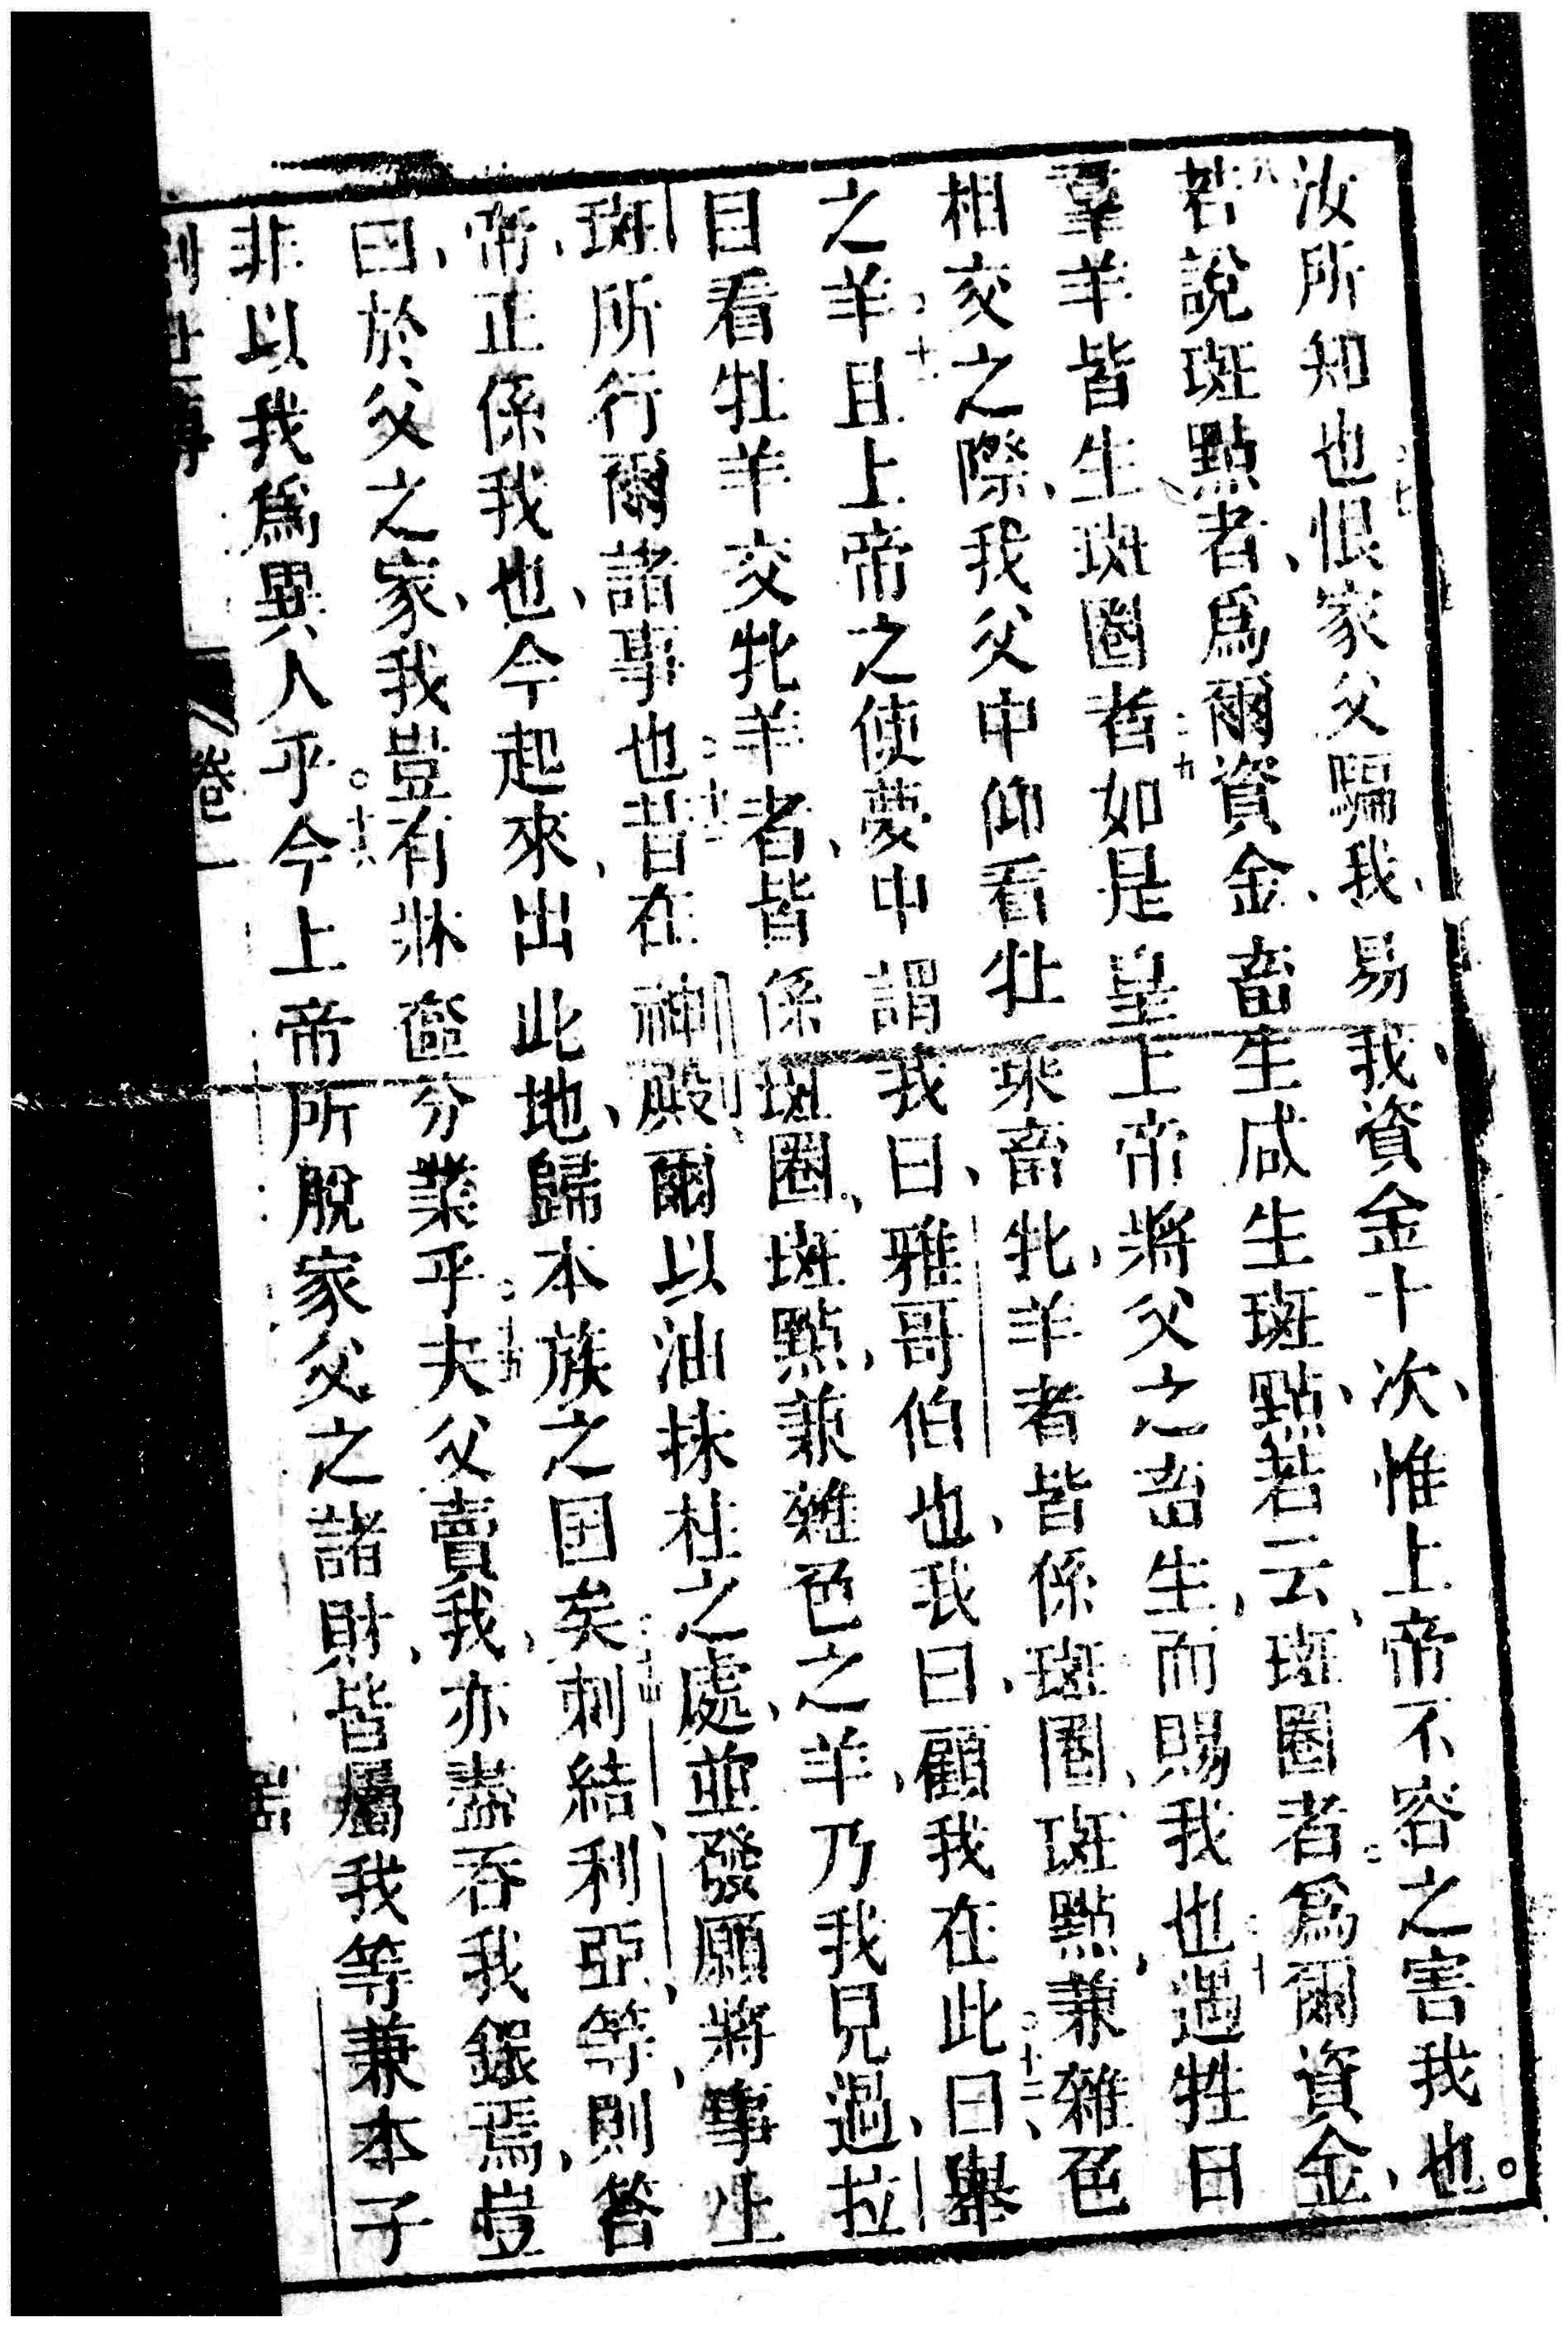 汝所知也恨家父騙我、易我資金十次、惟上帝不容之害我也。
八若說斑點者、爲爾資金、畜生咸生斑點、若云、斑圈者爲爾資金、
羣羊皆生斑圈者如是九皇上帝將父之畜生、而賜我也十遇牲日
相交之際、我父中仰看牡乘畜牝、羊者皆係斑圈、斑點、兼雜色
之羊、十一且上帝之使夢中謂我曰、雅哥伯也、我曰、顧我在此十二曰、舉
目看牡羊交牝羊者、皆係斑圈、斑點、兼雜色之羊、乃我見過、拉
斑所行爾諸事也十三昔在神殿、爾以油抹柱之處、並發願將事上
帝、正係我也、今起來、出此地、歸本族之国矣十四刺結、利亞、等、則答
曰、於父之家、我豈有牀奩分業乎。十五夫父賣我、亦盡吞我銀焉、豈
非以我爲異人乎。十六今上帝所脫家父之諸財、皆屬我等兼本子
卷一